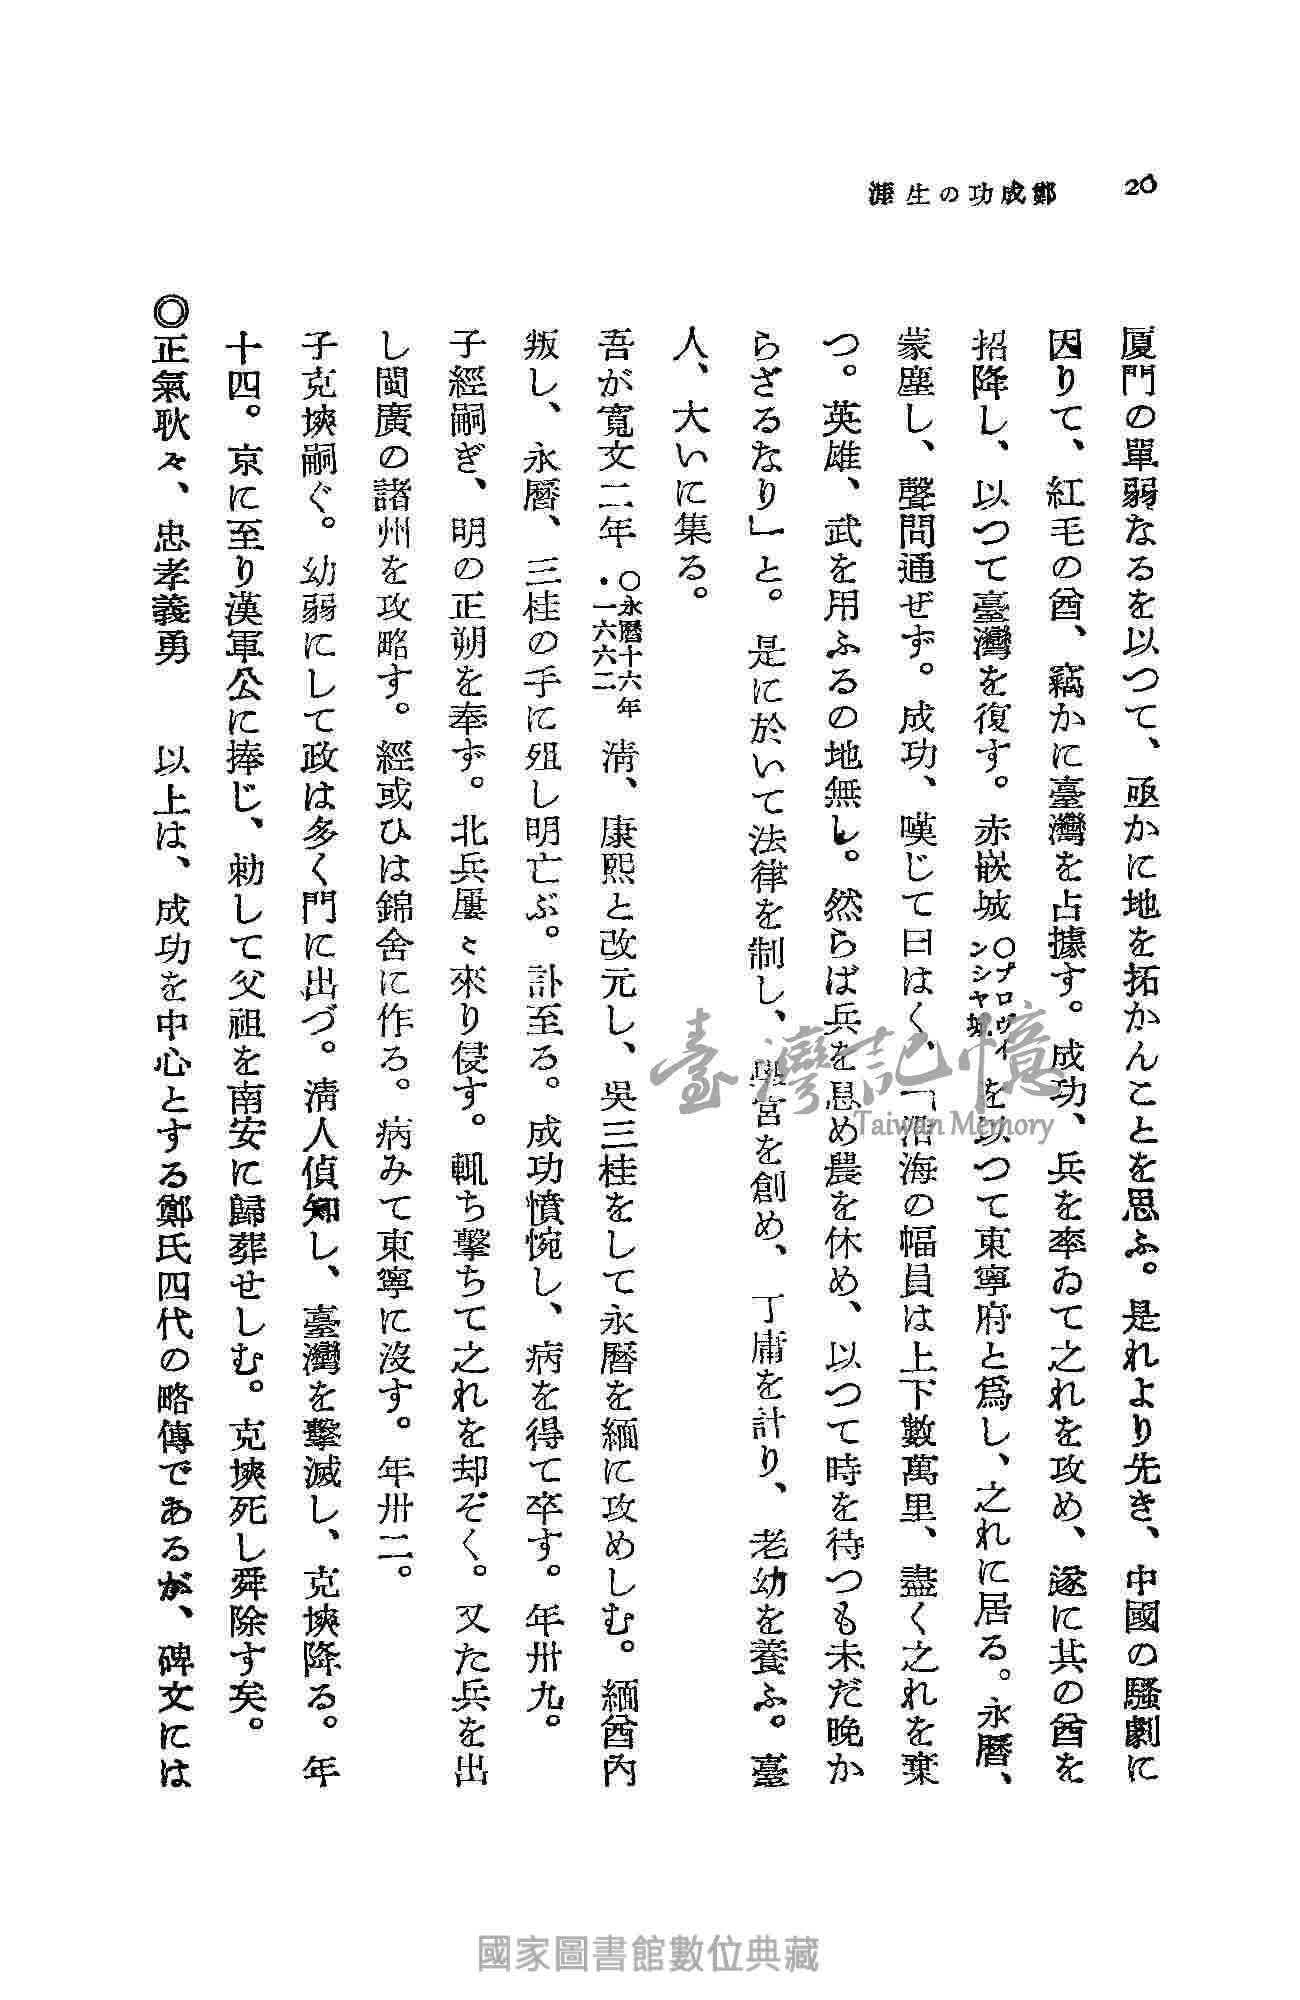 26
鄭成功の生涯
厦門の單弱なるを以つて、亟かに地を拓かんことを思ふ。是れより先き、中國の騷劇に
因りて、紅毛の酋、竊かに臺灣を占據す。成功、兵を率ゐて之れを攻め、遂に其の酋を
招降し、以つて臺灣を復す。赤嵌城〇プロヴインシヤ城を以つて東寧府と爲し、之れに居る。永曆、
蒙塵し、聲問通ぜず。成功、嘆じて曰はく、「沿海の幅員は上下數萬里、盡く之れを棄
つ。英雄、武を用ふるの地無し。然らば兵を息め農を休め、以つて時を待つも未だ晩か
らざるなり」と。是に於いて法律を制し、學宮を創め、丁庸を計り、老幼を養ふ。臺
人、大いに集る。
吾が寬文二年〇永曆十六年・一六六二淸、康熙と改元し、吳三桂をして永曆を緬に攻めしむ。緬酋內
叛し、永曆、三桂の手に殂し明亡ぶ。訃至る。成功憤惋し、病を得て卒す。年卅九。
子經嗣ぎ、明の正朔を奉ず。北兵屢〻來り侵す。輒ち擊ちて之れを却ぞく。又た兵を出
し閩廣の諸州を攻略す。經或ひは錦舍に作ろ。病みて東寧に沒す。年卅二。
子克塽嗣ぐ。幼弱にして政は多く門に出づ。淸人偵知し、臺灣を擊滅し、克塽降る。年
十四。京に至り漢軍公に捧じ、勅して父祖を南安に歸葬せしむ。克塽死し舜除す矣。
◎正氣耿々、忠孝義勇　以上は、成功を中心とする鄭氏四代の略傳であるが、碑文には
臺灣記憶
Taiwan Memory
國家圖書館數位典藏